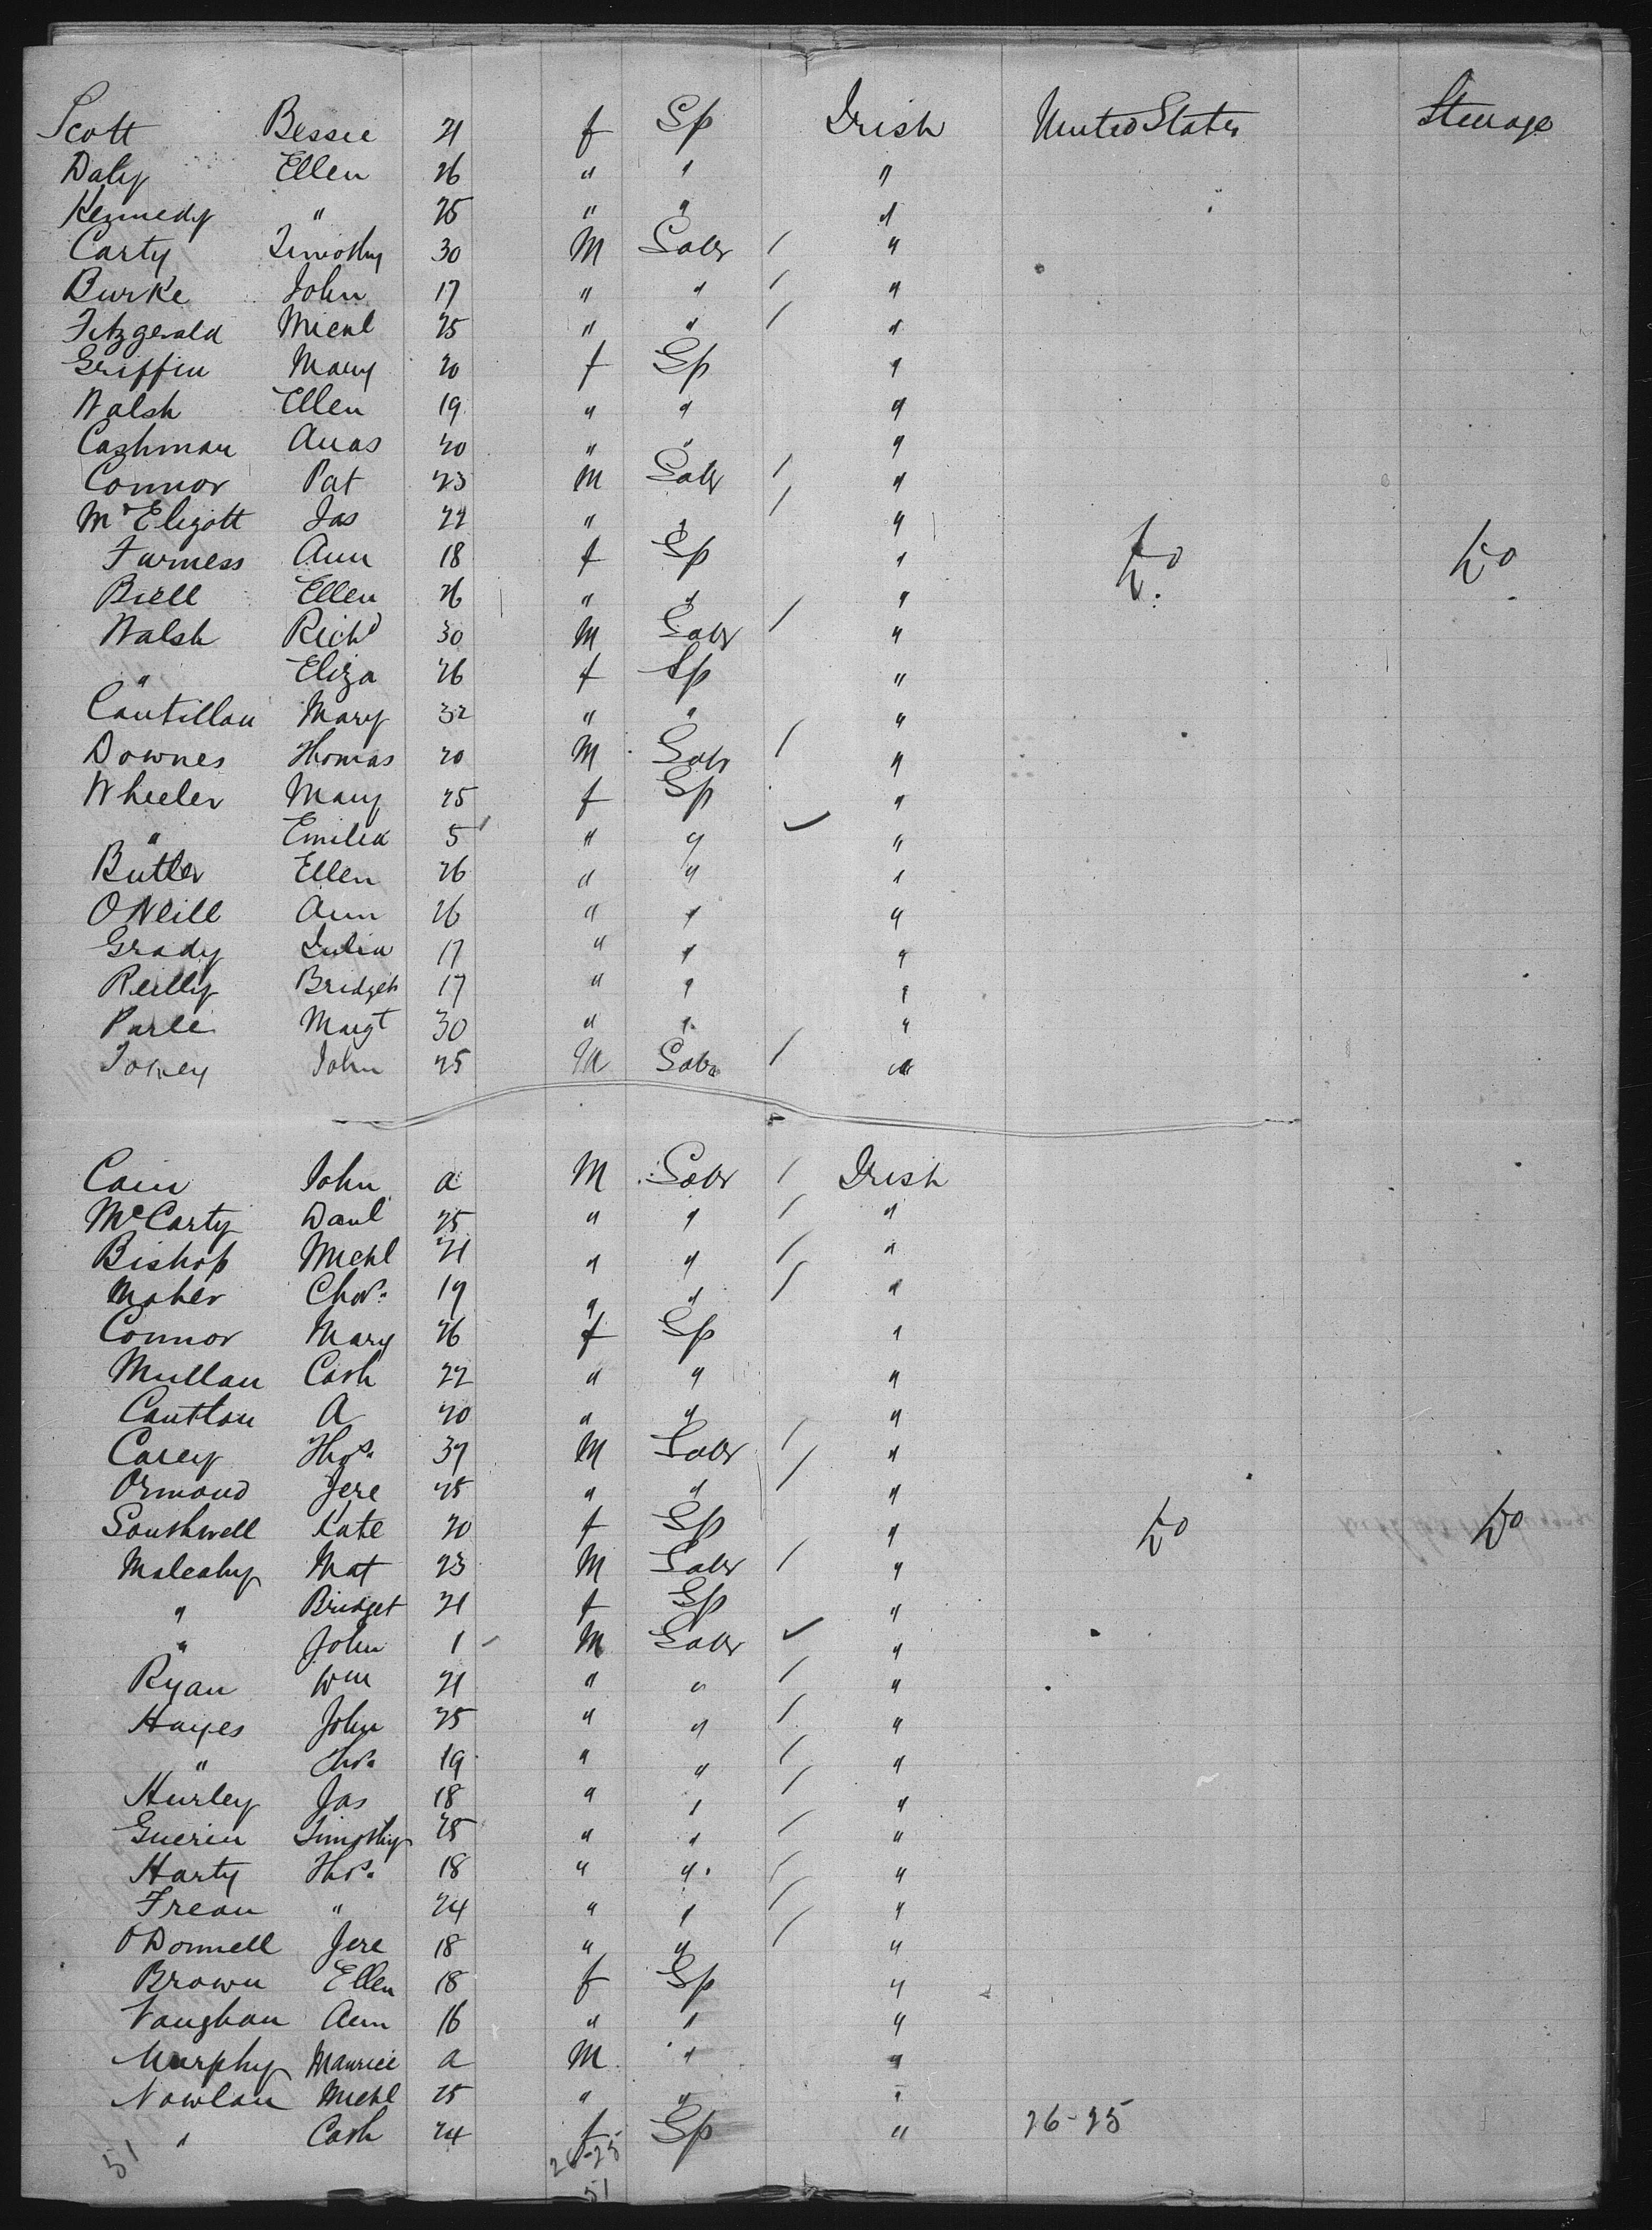 Scott Bessie 21 f Sp Irish United States Steerage
Daly Ellen 26 " " "
Kennedy " 25 " " "
Carty Timothy 30 M Labr / "
Burke John 17 " " / "
Fitzgerald Michl 25 " " / "
Griffin Mary 20 f Sp "
Walsh Ellen 19 " " "
Cashman 20 " " "
Connor Pat 23 M Labr / "
McEligott Jas 22 " " / "
Furness Ann 18 f Sp " Do Do
Ellen 26 " " "
Walsh Richd 30 M Labr / "
" Eliza 26 f Sp "
Cantillan Mary 32 " " "
Downes Thomas 20 M Labr / "
Wheeler Mary 25 f Sp "
" Emilia 5 " " ✓ "
Butler Ellen 26 " " "
ONeill Ann 26 " " "
Grady Julia 17 " " "
Reilly Bridget 17 " " "
Margt 30 " " "
John 25 M Labr / "
Cain John a M Labr / Irish
McCarty Danl 25 " " / "
Bishop Michl 21 " " / "
Maher Chas. 19 " " / "
Connor Mary 26 f Sp "
Mullan Cath 22 " " "
A 20 " " "
Carey Thos. 37 M Labr / "
Ormond Jere 25 " " / "
Southwell Kate 20 f Sp " Do Do
Mulcahy Mat 23 M Labr / "
" Bridget 21 f Sp "
" John 1 M Labr ✓ "
Ryan Wm 21 " " / "
Hayes John 25 " " / "
" Thos. 19 " " / "
Hurley Jas 18 " " / "
Guerin Timothy 28 " " / "
Harty Thos. 18 " " / "
Frean " 24 " " / "
ODonnell Jere 18 " " / "
Brown Ellen 18 f Sp "
Vaughan Ann 16 " " "
Murphy Maurice a M " "
Nowlan Michl 25 " " "
" Cath 24 f Sp " 26-25
51 26-25
51